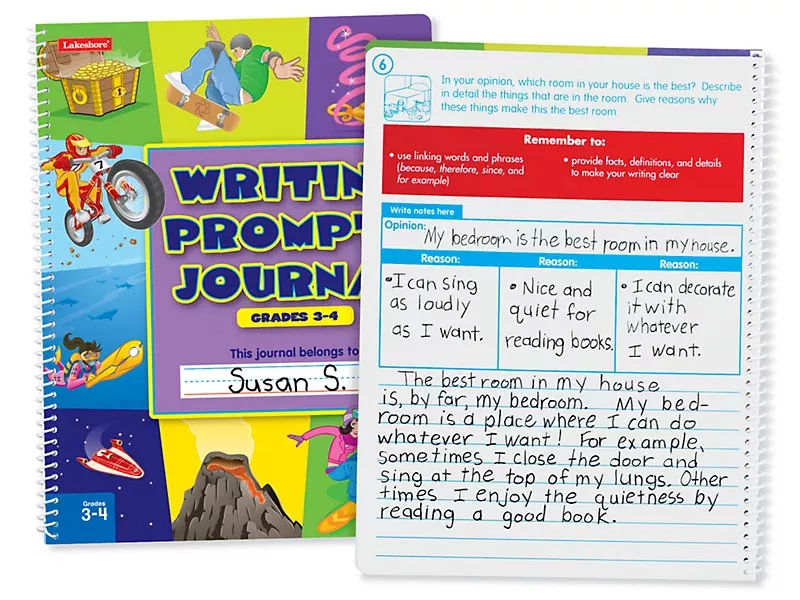 Lakeshore
WRITIN
PROMP
JOURN
GRADES 3-4
This journal belongs to
Susan S.
Grades
3-4
6
In your opinion, which room in your house is the best? Describe
in detail the things that are in the room. Give reasons why
these things make this the best room.
Remember to:
• use linking words and phrases
(because, therefore, since, and
for example)
• provide facts, definitions, and details
to make your writing clear
Write notes here
Opinion: My bedroom is the best room in my house.
Reason:
• I can sing
as loudly
as I want.
Reason:
• Nice and
quiet for
reading books.
Reason:
• I can decorate
it with
whatever
I want.
The best room in my house
is, by far, my bedroom. My bed-
room is a place where I can do
whatever I want! For example,
sometimes I close the door and
sing at the top of my lungs. Other
times I enjoy the quietness by
reading a good book.